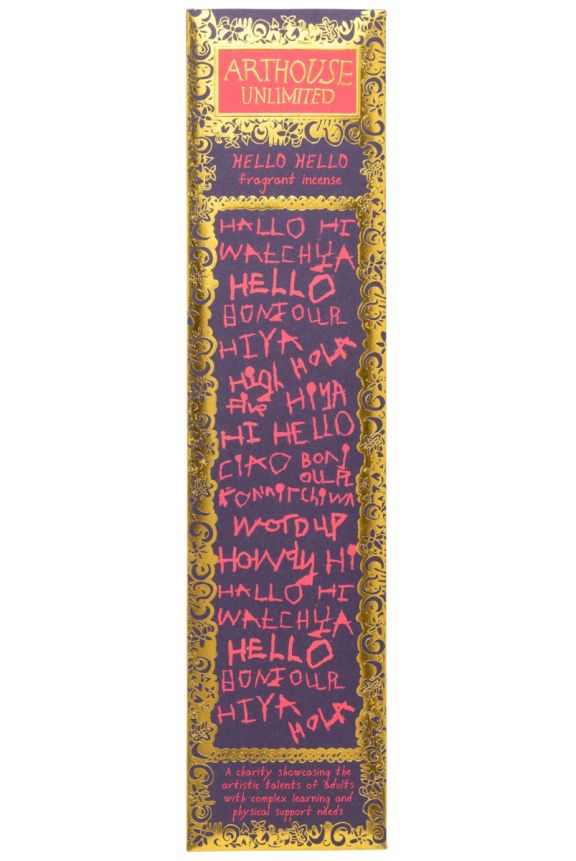 ARTHOUSE
UNLIMITED
HELLO HELLO
fragrant incense
HALLO HI
WATCHYA
HELLO
BONJOUR
HIYA HOLA
High
Five HIYA
HI HELLO
CIAO BONJ
OUR
KONNITCHIWA
WORD UP
HOWDY HI
HALLO HI
WATCHYA
HELLO
BONJOUR
HIYA HOLA
A charity showcasing the
artistic talents of adults
with complex learning and
physical support needs